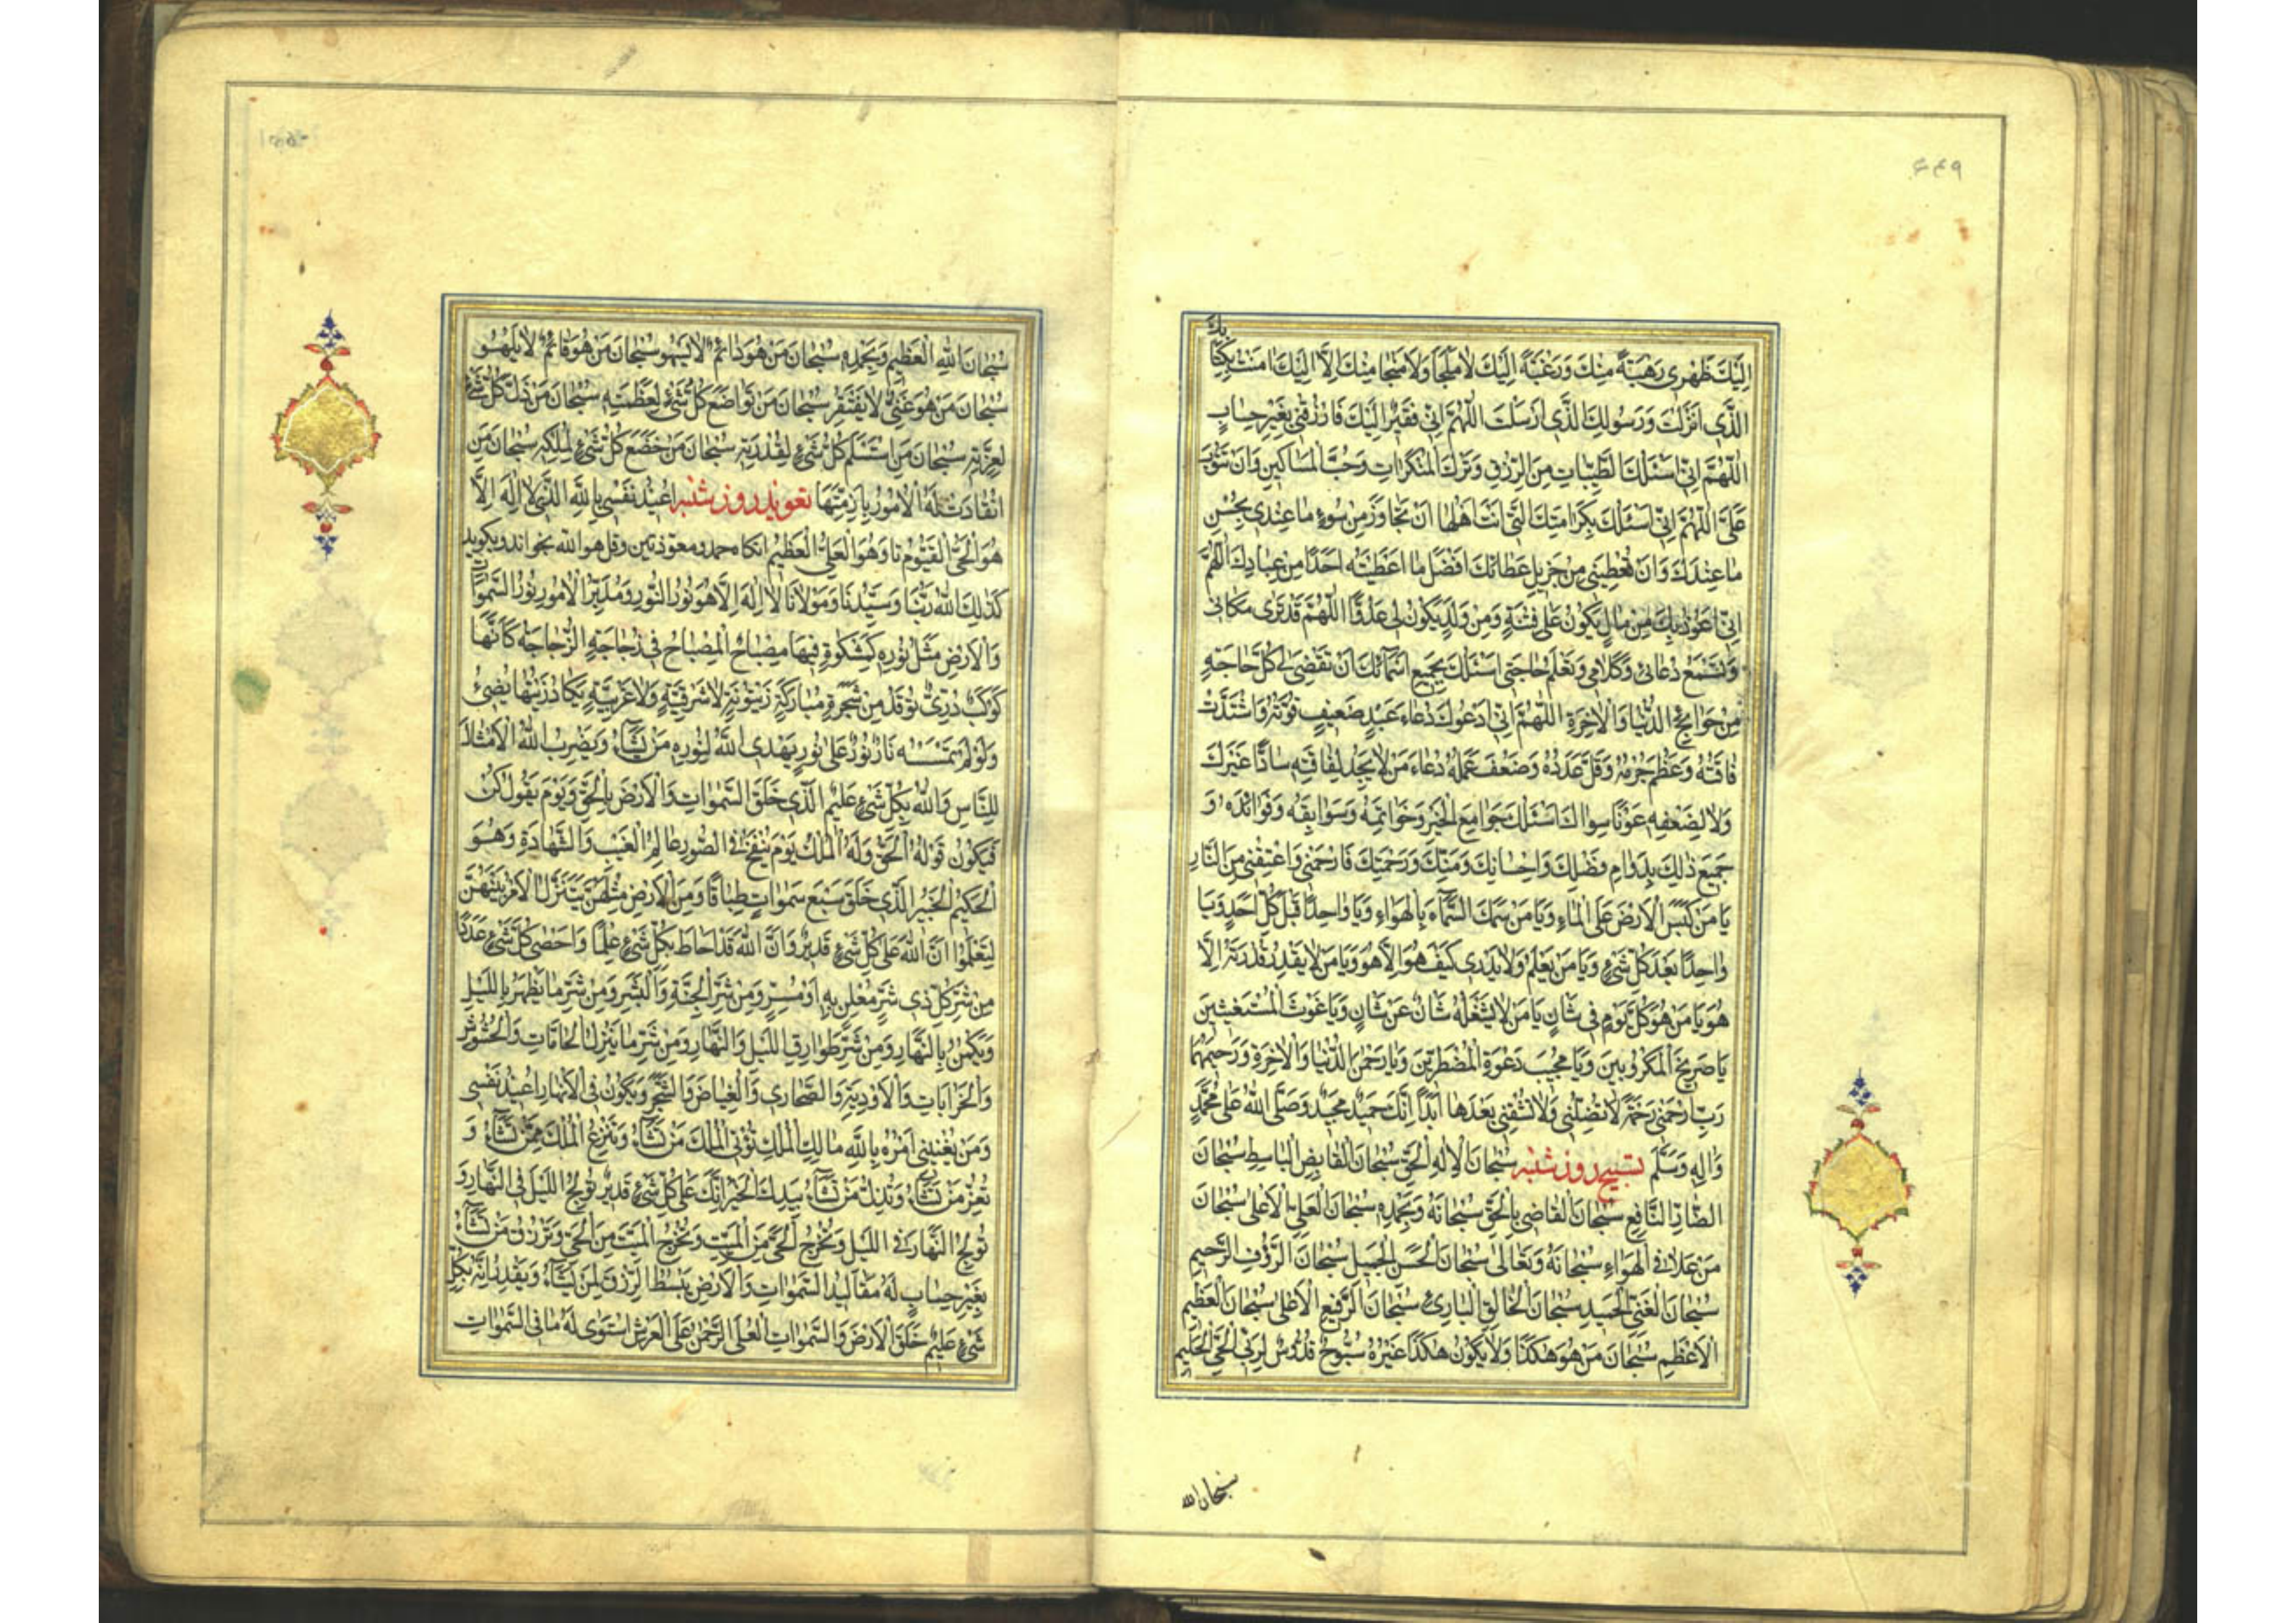 ۶۴۹
اِلَيْكَ ظَهْرى رَهْبَةً مِنْكَ وَرَغْبَةً اِلَيْكَ لا مَلْجَأَ وَلا مَنْجا مِنْكَ اِلّا اِلَيْكَ امَنْتُ بِكِتابِكَ
الَّذى اَنْزَلْتَ وَرَسُولِكَ الَّذى اَرْسَلْتَ اَللّهُمَّ اِنّى فَقيرٌ اِلَيْكَ فَارْزُقْنى بِغَيْرِ حِسابٍ
اَللّهُمَّ اِنّى اَسْئَلُكَ الطَّيِّباتِ مِنَ الرِّزْقِ وَتَرْكَ الْمُنْكَراتِ وَحُبَّ الْمَساكينِ وَاَنْ تَتُوبَ
عَلَىَّ اَللّهُمَّ اِنّى اَسْئَلُكَ بِكَرامَتِكَ الَّتى اَنْتَ اَهْلُها اَنْ تَجاوَزَ مِنْ سُوءِ ما عِنْدى بِحُسْنِ
ما عِنْدَكَ وَاَنْ تُعْطِيَنى مِنْ جَزيلِ عَطائِكَ اَفْضَلَ ما اَعْطَيْتَهُ اَحَدًا مِنْ عِبادِكَ اَللّهُمَّ
اِنّى اَعُوذُ بِكَ مِنْ مالٍ يَكُونُ عَلَىَّ فِتْنَةً وَمِنْ وَلَدٍ يَكُونُ لى عَدُوًّا اَللّهُمَّ قَدْ تَرى مَكانى
وَتَسْمَعُ دُعائى وَكَلامى وَتَعْلَمُ حاجَتى اَسْئَلُكَ بِجَميعِ اَسْمائِكَ اَنْ تَقْضِىَ لى كُلَّ حاجَةٍ
مِنْ حَوائِجِ الدُّنْيا وَالْاخِرَةِ اَللّهُمَّ اِنّى اَدْعُوكَ دُعاءَ عَبْدٍ ضَعيفٍ قُوَّتُهُ وَاشْتَدَّتْ
فاقَتُهُ وَعَظُمَ جُرْمُهُ وَقَلَّ عَدَدُهُ وَضَعُفَ عَمَلُهُ دُعاءَ مَنْ لا يَجِدُ لِفاقَتِهِ سادًّا غَيْرَكَ
وَلا لِضَعْفِهِ عَوْنًا سِواكَ اَسْئَلُكَ جَوامِعَ الْخَيْرِ وَخَواتِمَهُ وَسَوابِقَهُ وَفَوائِدَهُ وَ
جَميعَ ذلِكَ بِدَوامِ فَضْلِكَ وَاِحْسانِكَ وَمَنِّكَ وَرَحْمَتِكَ فَارْحَمْنى وَاَعْتِقْنى مِنَ النّارِ
يا مَنْ كَبَسَ الْاَرْضَ عَلَى الْماءِ وَيا مَنْ سَمَكَ السَّماءَ بِالْهَواءِ وَيا واحِدًا قَبْلَ كُلِّ اَحَدٍ وَيا
واحِدًا بَعْدَ كُلِّ شَىْءٍ وَيا مَنْ يَعْلَمُ وَلا يَدْرى كَيْفَ هُوَ اِلّا هُوَ وَيا مَنْ لا يَقْدِرُ قُدْرَتَهُ اِلّا
هُوَ يا مَنْ هُوَ كُلَّ يَوْمٍ فى شَأنٍ يا مَنْ لا يَشْغَلُهُ شَأنٌ عَنْ شَأنٍ وَيا غَوْثَ الْمُسْتَغيثينَ
يا صَريخَ الْمَكْرُوبينَ وَيا مُجيبَ دَعْوَةِ الْمُضْطَرّينَ وَيا رَحْمنَ الدُّنْيا وَالْاخِرَةِ وَرَحيمَهُما
رَبِّ ارْحَمْنى رَحْمَةً لا تُضِلُّنى وَلا تُشْقِنى بَعْدَها اَبَدًا اِنَّكَ حَميدٌ مَجيدٌ وَصَلَّى اللهُ عَلى مُحَمَّدٍ
وَالِهِ وَسَلَّمَ تسبيح روز شنبه سُبْحانَ الْاِلهِ الْحَقِّ سُبْحانَ الْقابِضِ الْباسِطِ سُبْحانَ
الضّارِّ النّافِعِ سُبْحانَ الْقاضى بِالْحَقِّ سُبْحانَهُ وَبِحَمْدِهِ سُبْحانَ الْعَلِىِّ الْاَعْلى سُبْحانَ
مَنْ عَلا فِى الْهَواءِ سُبْحانَهُ وَتَعالى سُبْحانَ الْحَسَنِ الْجَميلِ سُبْحانَ الرَّؤُفِ الرَّحيمِ
سُبْحانَ الْغَنِىِّ الْحَميدِ سُبْحانَ الْخالِقِ الْبارِئِ سُبْحانَ الرَّفيعِ الْاَعْلى سُبْحانَ الْعَظيمِ
الْاَعْظَمِ سُبْحانَ مَنْ هُوَ هكَذا وَلا يَكُونُ هكَذا غَيْرُهُ سُبُّوحٌ قُدُّوسٌ لِرَبِّىَ الْحَىِّ الْحَليمِ
سُبْحانَ الله
سُبْحانَ اللهِ الْعَظيمِ وَبِحَمْدِهِ سُبْحانَ مَنْ هُوَ دائِمٌ لا يَسْهُو سُبْحانَ مَنْ هُوَ قائِمٌ لا يَلْهُو
سُبْحانَ مَنْ هُوَ غَنِىٌّ لا يَفْتَقِرُ سُبْحانَ مَنْ تَواضَعَ كُلُّ شَىْءٍ لِعَظَمَتِهِ سُبْحانَ مَنْ ذَلَّ كُلُّ شَىْءٍ
لِعِزَّتِهِ سُبْحانَ مَنِ اسْتَسْلَمَ كُلُّ شَىْءٍ لِقُدْرَتِهِ سُبْحانَ مَنْ خَضَعَ كُلُّ شَىْءٍ لِمُلْكِهِ سُبْحانَ مَنِ
انْقادَتْ لَهُ الْاُمُورُ بِاَزِمَّتِها تعويذ روز شنبه اُعيذُ نَفْسى بِاللهِ الَّذى لا اِلهَ اِلّا
هُوَ الْحَىُّ الْقَيُّومُ تا وَهُوَ الْعَلِىُّ الْعَظيمُ انكاه حمد و معوّذتين وقل هو الله بخواند و بكويد
كَذلِكَ اللهُ رَبُّنا وَسَيِّدُنا وَمَوْلانا لا اِلهَ اِلّا هُوَ نُورُ النُّورِ وَمُدَبِّرُ الْاُمُورِ نُورُ السَّمواتِ
وَالْاَرْضِ مَثَلُ نُورِهِ كَمِشْكوةٍ فيها مِصْباحٌ الْمِصْباحُ فى زُجاجَةٍ الزُّجاجَةُ كَاَنَّها
كَوْكَبٌ دُرِّىٌّ تُوقَدُ مِنْ شَجَرَةٍ مُبارَكَةٍ زَيْتُونَةٍ لا شَرْقِيَّةٍ وَلا غَرْبِيَّةٍ يَكادُ زَيْتُها يُضىءُ
وَلَوْ لَمْ تَمْسَسْهُ نارٌ نُورٌ عَلى نُورٍ يَهْدِى اللهُ لِنُورِهِ مَنْ يَشاءُ وَيَضْرِبُ اللهُ الْاَمْثالَ
لِلنّاسِ وَاللهُ بِكُلِّ شَىْءٍ عَليمٌ الَّذى خَلَقَ السَّمواتِ وَالْاَرْضَ بِالْحَقِّ وَيَوْمَ يَقُولُ كُنْ
فَيَكُونُ قَوْلُهُ الْحَقُّ وَلَهُ الْمُلْكُ يَوْمَ يُنْفَخُ فِى الصُّورِ عالِمُ الْغَيْبِ وَالشَّهادَةِ وَهُوَ
الْحَكيمُ الْخَبيرُ الَّذى خَلَقَ سَبْعَ سَمواتٍ طِباقًا وَمِنَ الْاَرْضِ مِثْلَهُنَّ يَتَنَزَّلُ الْاَمْرُ بَيْنَهُنَّ
لِتَعْلَمُوا اَنَّ اللهَ عَلى كُلِّ شَىْءٍ قَديرٌ وَاَنَّ اللهَ قَدْ اَحاطَ بِكُلِّ شَىْءٍ عِلْمًا وَاَحْصى كُلَّ شَىْءٍ عَدَدًا
مِنْ شَرِّ كُلِّ ذى شَرٍّ مُعْلِنٍ بِهِ اَوْ مُسِرٍّ وَمِنْ شَرِّ الْجِنَّةِ وَالْبَشَرِ وَمِنْ شَرِّ ما يَظْهَرُ بِاللَّيْلِ
وَيَكْمُنُ بِالنَّهارِ وَمِنْ شَرِّ طَوارِقِ اللَّيْلِ وَالنَّهارِ وَمِنْ شَرِّ ما يَنْزِلُ الْحَمّاماتِ وَالْحُشُوشَ
وَالْخَراباتِ وَالْاَوْدِيَةَ وَالصَّحارى وَالْغِياضَ وَالشَّجَرَ وَيَكُونُ فِى الْاَنْهارِ اُعيذُ نَفْسى
وَمَنْ يَعْنينى اَمْرُهُ بِاللهِ مالِكِ الْمُلْكِ تُؤْتِى الْمُلْكَ مَنْ تَشاءُ وَتَنْزِعُ الْمُلْكَ مِمَّنْ تَشاءُ وَ
تُعِزُّ مَنْ تَشاءُ وَتُذِلُّ مَنْ تَشاءُ بِيَدِكَ الْخَيْرُ اِنَّكَ عَلى كُلِّ شَىْءٍ قَديرٌ تُولِجُ اللَّيْلَ فِى النَّهارِ وَ
تُولِجُ النَّهارَ فِى اللَّيْلِ وَتُخْرِجُ الْحَىَّ مِنَ الْمَيِّتِ وَتُخْرِجُ الْمَيِّتَ مِنَ الْحَىِّ وَتَرْزُقُ مَنْ تَشاءُ
بِغَيْرِ حِسابٍ لَهُ مَقاليدُ السَّمواتِ وَالْاَرْضِ يَبْسُطُ الرِّزْقَ لِمَنْ يَشاءُ وَيَقْدِرُ اِنَّهُ بِكُلِّ
شَىْءٍ عَليمٌ خَلَقَ الْاَرْضَ وَالسَّمواتِ الْعُلى الرَّحْمنُ عَلَى الْعَرْشِ اسْتَوى لَهُ ما فِى السَّمواتِ